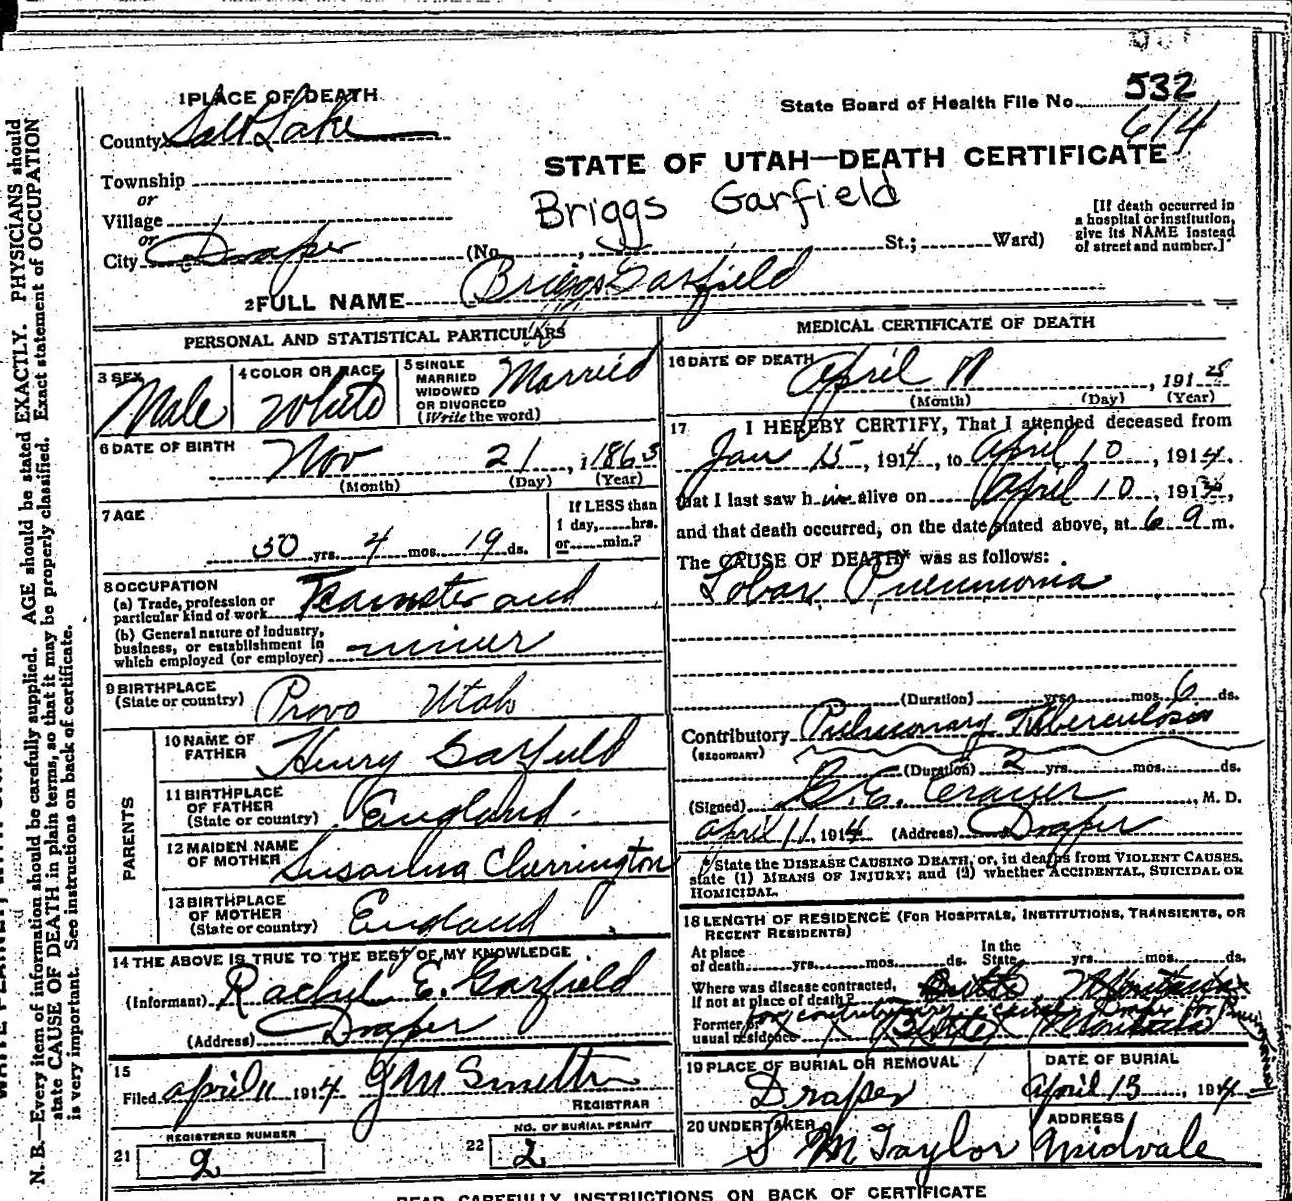 1 PLACE OF DEATH
County Salt Lake
Township
or
Village
or
City Draper
State Board of Health File No. 532
614
STATE OF UTAH—DEATH CERTIFICATE
Briggs Garfield
(No. , St.; Ward)
[If death occurred in
a hospital or institution,
give its NAME instead
of street and number.]
2 FULL NAME Briggs Garfield
PERSONAL AND STATISTICAL PARTICULARS
3 SEX Male
4 COLOR OR RACE White
5 SINGLE
MARRIED
WIDOWED
OR DIVORCED
(Write the word)
Married
6 DATE OF BIRTH
Nov 21, 1863
(Month) (Day) (Year)
7 AGE
50 yrs. 4 mos. 19 ds.
If LESS than
1 day, hrs.
or min.?
8 OCCUPATION
(a) Trade, profession or
particular kind of work Teamster and
(b) General nature of industry,
business, or establishment in
which employed (or employer) miner
9 BIRTHPLACE
(State or country) Provo Utah
PARENTS
10 NAME OF
FATHER Henry Garfield
11 BIRTHPLACE
OF FATHER
(State or country) England
12 MAIDEN NAME
OF MOTHER Susanna Cherrington
13 BIRTHPLACE
OF MOTHER
(State or country) England
14 THE ABOVE IS TRUE TO THE BEST OF MY KNOWLEDGE
(Informant) Rachel E. Garfield
(Address) Draper
15
Filed April 11 1914 Smith
REGISTRAR
REGISTERED NUMBER
21 2
22 NO. OF BURIAL PERMIT
2
MEDICAL CERTIFICATE OF DEATH
16 DATE OF DEATH
April 11, 191
(Month) (Day) (Year)
17 I HEREBY CERTIFY, That I attended deceased from
Jan 15, 1914, to April 10, 1914.
that I last saw him alive on April 10, 191 ,
and that death occurred, on the date stated above, at 6 a m.
The CAUSE OF DEATH* was as follows:
Lobar Pneumonia
(Duration) yrs. mos. 6 ds.
Contributory Pulmonary Tuberculosis
(SECONDARY)
(Duration) 2 yrs. mos. ds.
(Signed) M. D.
April 11, 1914 (Address) Draper
* State the DISEASE CAUSING DEATH, or, in deaths from VIOLENT CAUSES,
state (1) MEANS OF INJURY; and (2) whether ACCIDENTAL, SUICIDAL OR
HOMICIDAL.
18 LENGTH OF RESIDENCE (FOR HOSPITALS, INSTITUTIONS, TRANSIENTS, OR
RECENT RESIDENTS)
At place
of death yrs. mos. ds. In the
State yrs. mos. ds.
Where was disease contracted,
if not at place of death?
Former or
usual residence
19 PLACE OF BURIAL OR REMOVAL
Draper
DATE OF BURIAL
April 13, 1914
20 UNDERTAKER
S M Taylor
ADDRESS
Midvale
READ CAREFULLY INSTRUCTIONS ON BACK OF CERTIFICATE
N. B.—Every item of information should be carefully supplied. AGE should be stated EXACTLY. PHYSICIANS should
state CAUSE OF DEATH in plain terms, so that it may be properly classified. Exact statement of OCCUPATION
is very important. See instructions on back of certificate.